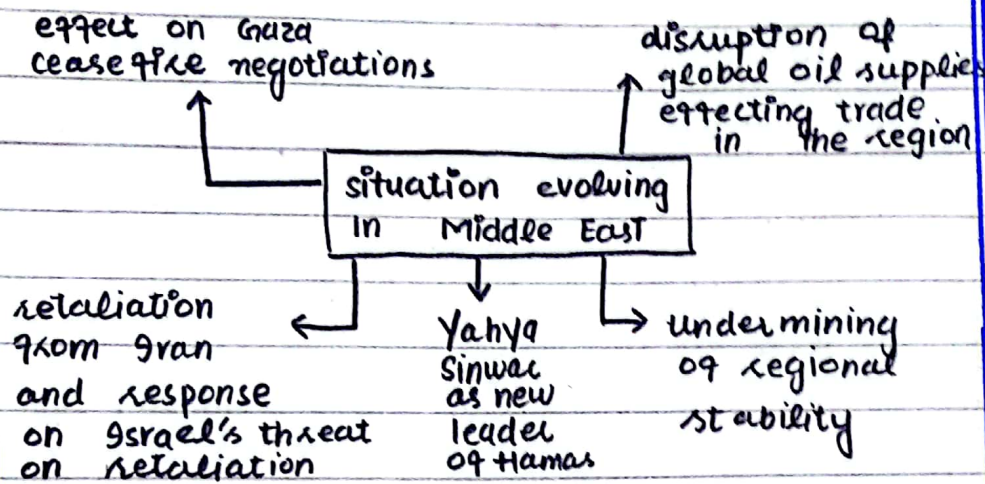 effect on Gaza
ceasefire negotiations
disruption of
global oil supplies
effecting trade
in the region
situation evolving
in Middle East
retaliation
from Iran
and response
on Israel's threat
on retaliation
Yahya
Sinwar
as new
leader
of Hamas
undermining
of regional
stability